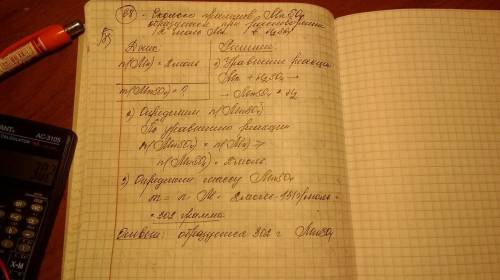 68 - Сколько граммов MnSO4
образуется при растворении
2 моль Mn + H2SO4
Дано
Решение
n(Mn) = 2 моль
1) Уравнение реакции
Mn + H2SO4 →
→ MnSO4 + H2
m(MnSO4) = ?
2) Определим n(MnSO4)
По уравнению реакции
n(MnSO4) = n(Mn) ⇒
n(MnSO4) = 2 моль
3) Определим массу MnSO4
m = n · M = 2 моль · 151 г/моль =
= 302 грамма
Ответ: образуется 302 г MnSO4
AC-3105
302
X-M